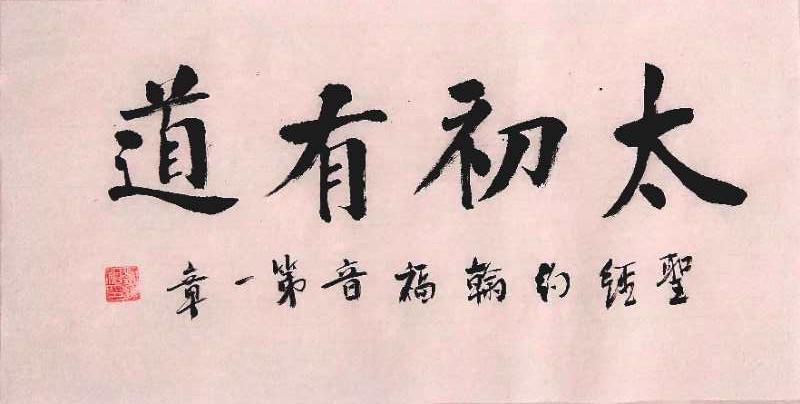 太初有道
聖經約翰福音第一章